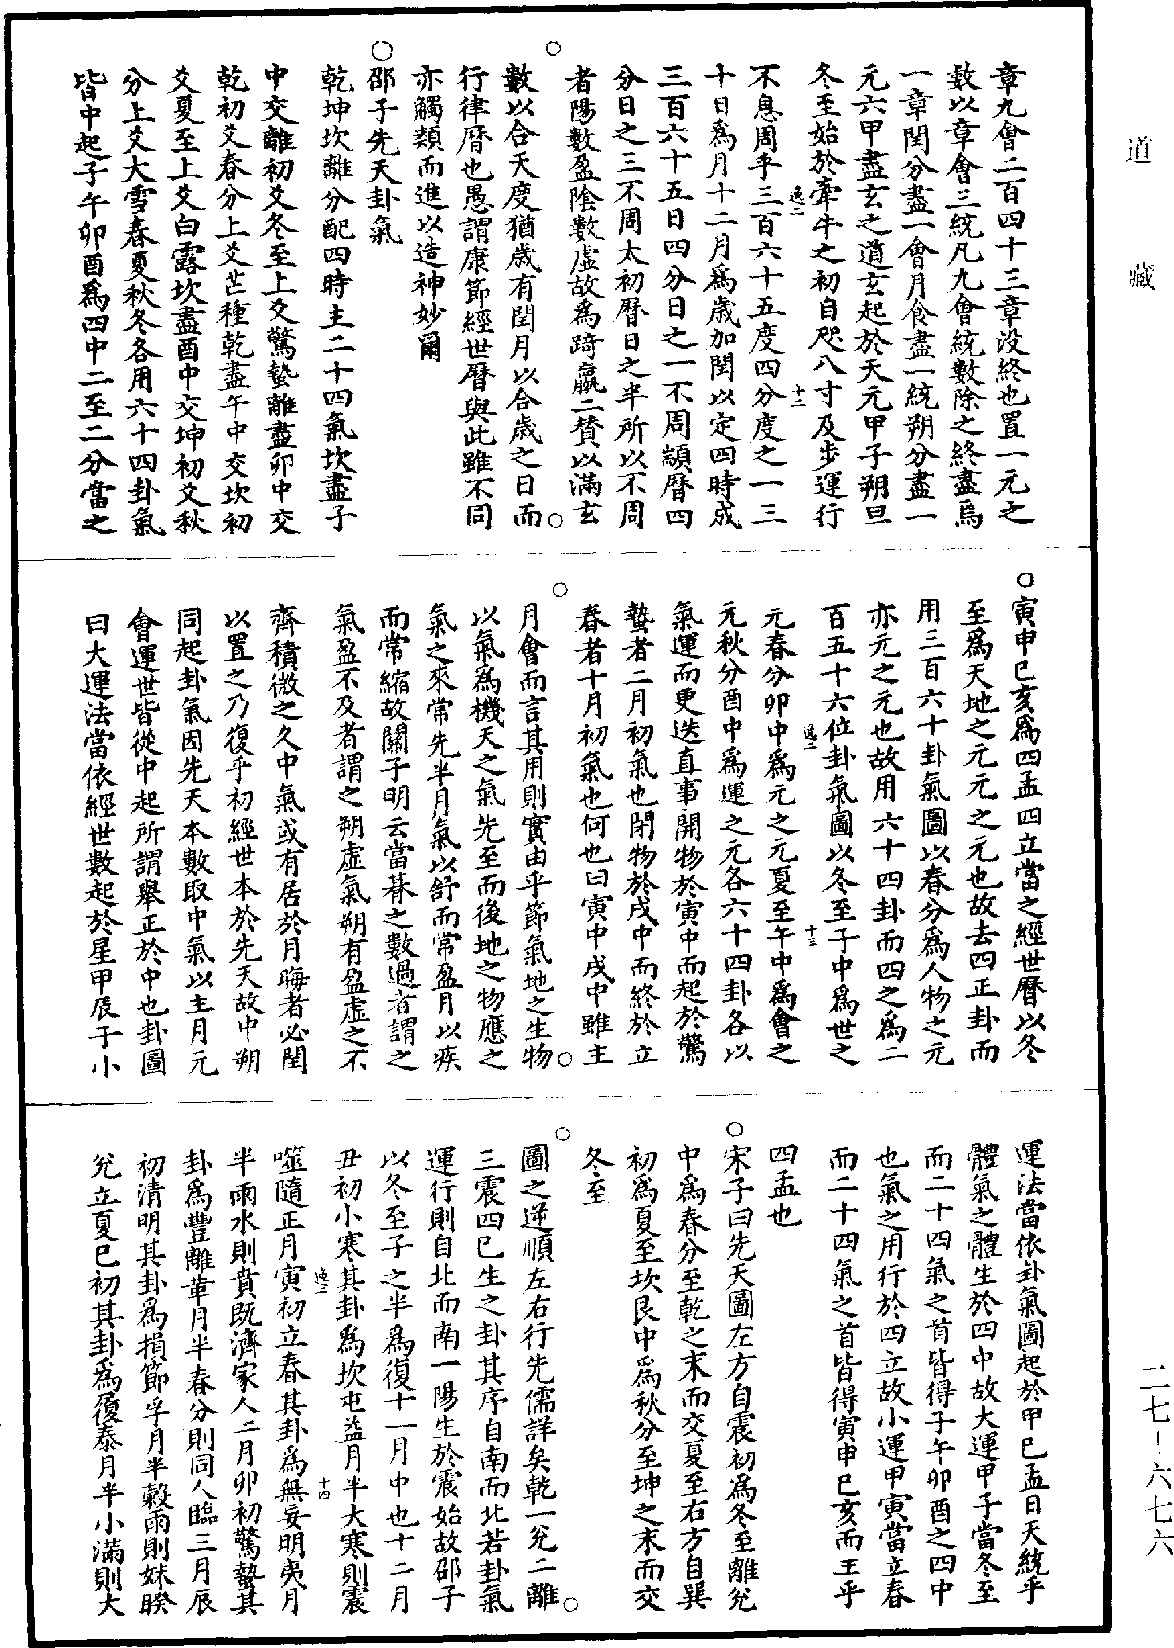 道藏
章九會二百四十三章沒終也置一元之
數以章會三統凡九會統數除之終盡焉
一章閏分盡一會月食盡一統朔分盡一
元六甲盡玄之道玄起於天元甲子朔旦
冬至始於牽牛之初自咫八寸及步運行
逸二
十二
不息周乎三百六十五度四分度之一三
十日爲月十二月爲歲加閏以定四時成
三百六十五日四分日之一不周顓曆四
分日之三不周太初曆日之半所以不周
者陽數盈陰數虛故爲踦嬴二贊以滿玄
數以合天度猶歲有閏月以合歲之日而
行律曆也愚謂康節經世曆與此雖不同
亦觸類而進以造神妙爾
○邵子先天卦氣
乾坤坎離分配四時主二十四氣坎盡子
中交離初爻冬至上爻驚蟄離盡卯中交
乾初爻春分上爻芒種乾盡午中交坎初
爻夏至上爻白露坎盡酉中交坤初爻秋
分上爻大雪春夏秋冬各用六十四卦氣
皆中起子午卯酉爲四中二至二分當之
○寅申巳亥爲四孟四立當之經世曆以冬
至爲天地之元元之元也故去四正卦而
用三百六十卦氣圖以春分爲人物之元
亦元之元也故用六十四卦而四之爲二
百五十六位卦氣圖以冬至子中爲世之
逸二
十三
元春分卯中爲元之元夏至午中爲會之
元秋分酉中爲運之元各六十四卦各以
氣運而更迭直事開物於寅中而起於驚
蟄者二月初氣也閉物於戌中而終於立
春者十月初氣也何也曰寅中戌中雖主
月會而言其用則實由乎節氣地之生物
以氣爲機天之氣先至而後地之物應之
氣之來常先半月氣以舒而常盈月以疾
而常縮故關子明云當朞之數過者謂之
氣盈不及者謂之朔虛氣朔有盈虛之不
齊積微之久中氣或有居於月晦者必閏
以置之乃復乎初經世本於先天故中朔
同起卦氣因先天本數取中氣以主月元
會運世皆從中起所謂舉正於中也卦圖
曰大運法當依經世數起於星甲辰子小
運法當依卦氣圖起於甲巳孟日天統乎
體氣之體生於四中故大運甲子當冬至
而二十四氣之首皆得子午卯酉之四中
也氣之用行於四立故小運甲寅當立春
而二十四氣之首皆得寅申巳亥而王乎
四孟也
○宋子曰先天圖左方自震初爲冬至離兌
中爲春分至乾之末而交夏至右方自巽
初爲夏至坎艮中爲秋分至坤之末而交
冬至
圖之逆順左右行先儒詳矣乾一兌二離
三震四巳生之卦其序自南而北若卦氣
運行則自北而南一陽生於震始故邵子
以冬至子之半爲復十一月中也十二月
丑初小寒其卦爲坎屯益月半大寒則震
逸二
十四
噬隨正月寅初立春其卦爲無妄明夷月
半雨水則賁既濟家人二月卯初驚蟄其
卦爲豐離革月半春分則同人臨三月辰
初清明其卦爲損節孚月半穀雨則妹睽
兌立夏巳初其卦爲履泰月半小滿則大
二七-六七六